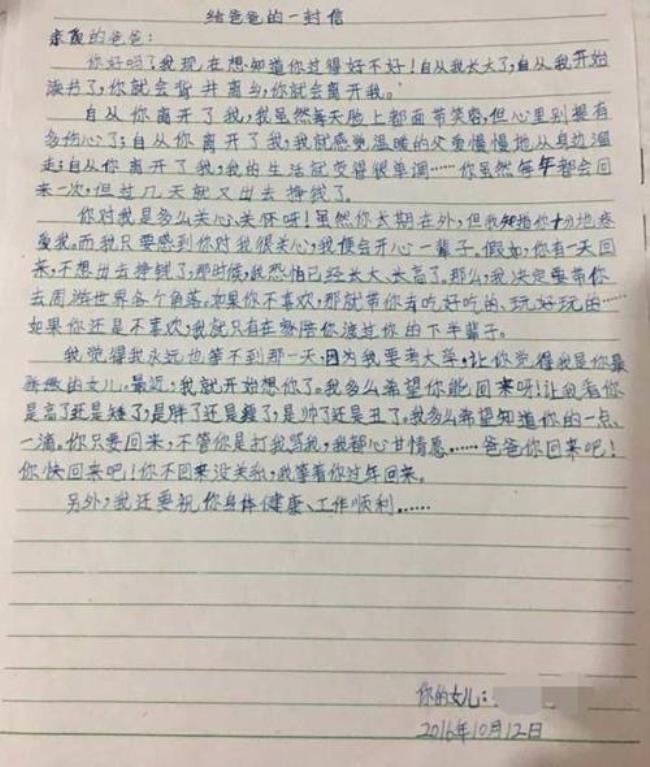 给爸爸的一封信
亲爱的爸爸：
你好吗？我现在想知道你过得好不好！自从我长大了，自从我开始
读书了，你就会背井离乡，你就会离开我。
自从你离开了我，我虽然每天脸上都面带笑容，但心里别提有
多伤心了；自从你离开了我，我就感觉温暖的父爱慢慢地从身边溜
走；自从你离开了我，我的生活就变得很单调……你虽然每年都会回
来一次，但过几天就又出去挣钱了。
你对我是多么关心、关怀呀！虽然你长期在外，但我知道你十分地疼
爱我。而我只要感到你对我很关心，我便会开心一辈子。假如，你有一天回
来，不想出去挣钱了，那时候，我恐怕已经长大、长高了。那么，我决定要带你
去周游世界各个角落。如果你不喜欢，那就带你去吃好吃的、玩好玩的……
如果你还是不喜欢，我就只有在家陪你渡过你的下半辈子。
我觉得我永远也等不到那一天，因为我要考大学，让你觉得我是你最
骄傲的女儿。最近，我就开始想你了。我多么希望你能回来呀！让我看你
是高了还是矮了，是胖了还是瘦了，是帅了还是丑了。我多么希望知道你的一点、
一滴。你只要回来，不管你是打我骂我，我都心甘情愿……爸爸你回来吧！
你快回来吧！你不回来没关系，我等着你过年回来。
另外，我还要祝你身体健康、工作顺利……
你的女儿：
2016年10月12日